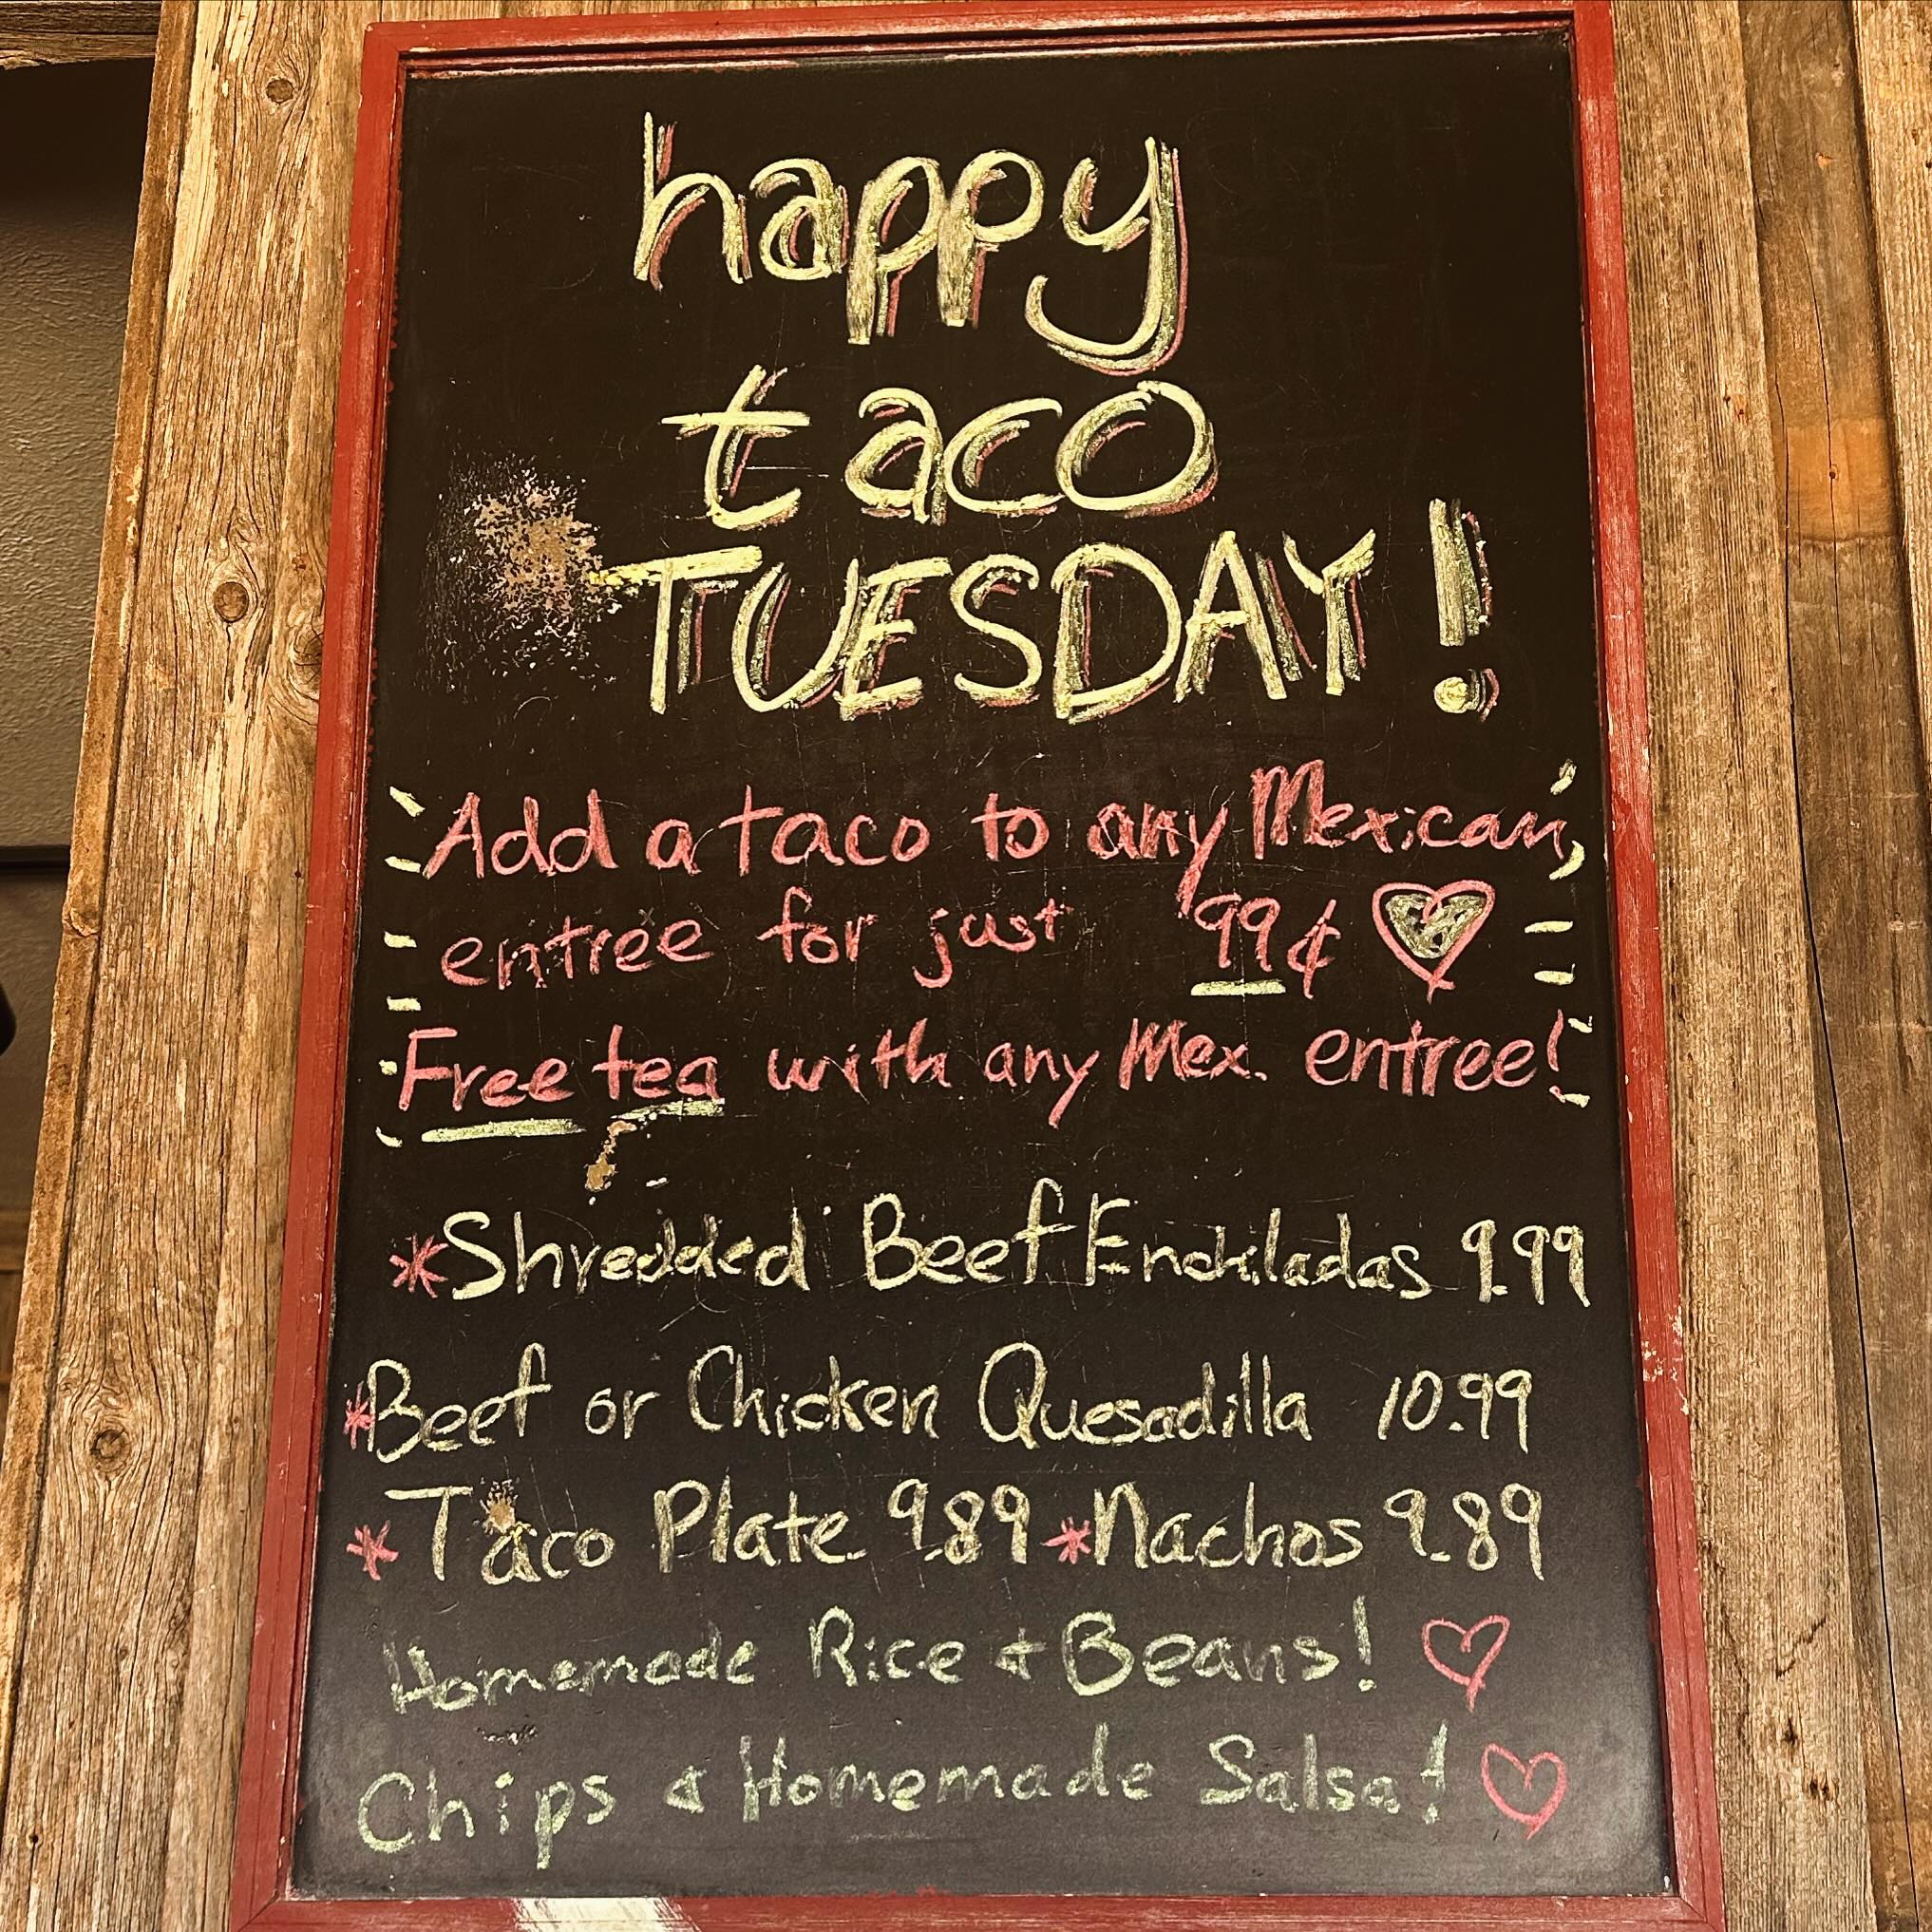 happy
taco
TUESDAY!
Add a taco to any Mexican
entree for just 99¢
Free tea with any Mex. entree!
*Shredded Beef Enchiladas 9.99
*Beef or Chicken Quesadilla 10.99
*Taco Plate 9.89 *Nachos 9.89
Homemade Rice & Beans!
Chips & Homemade Salsa!